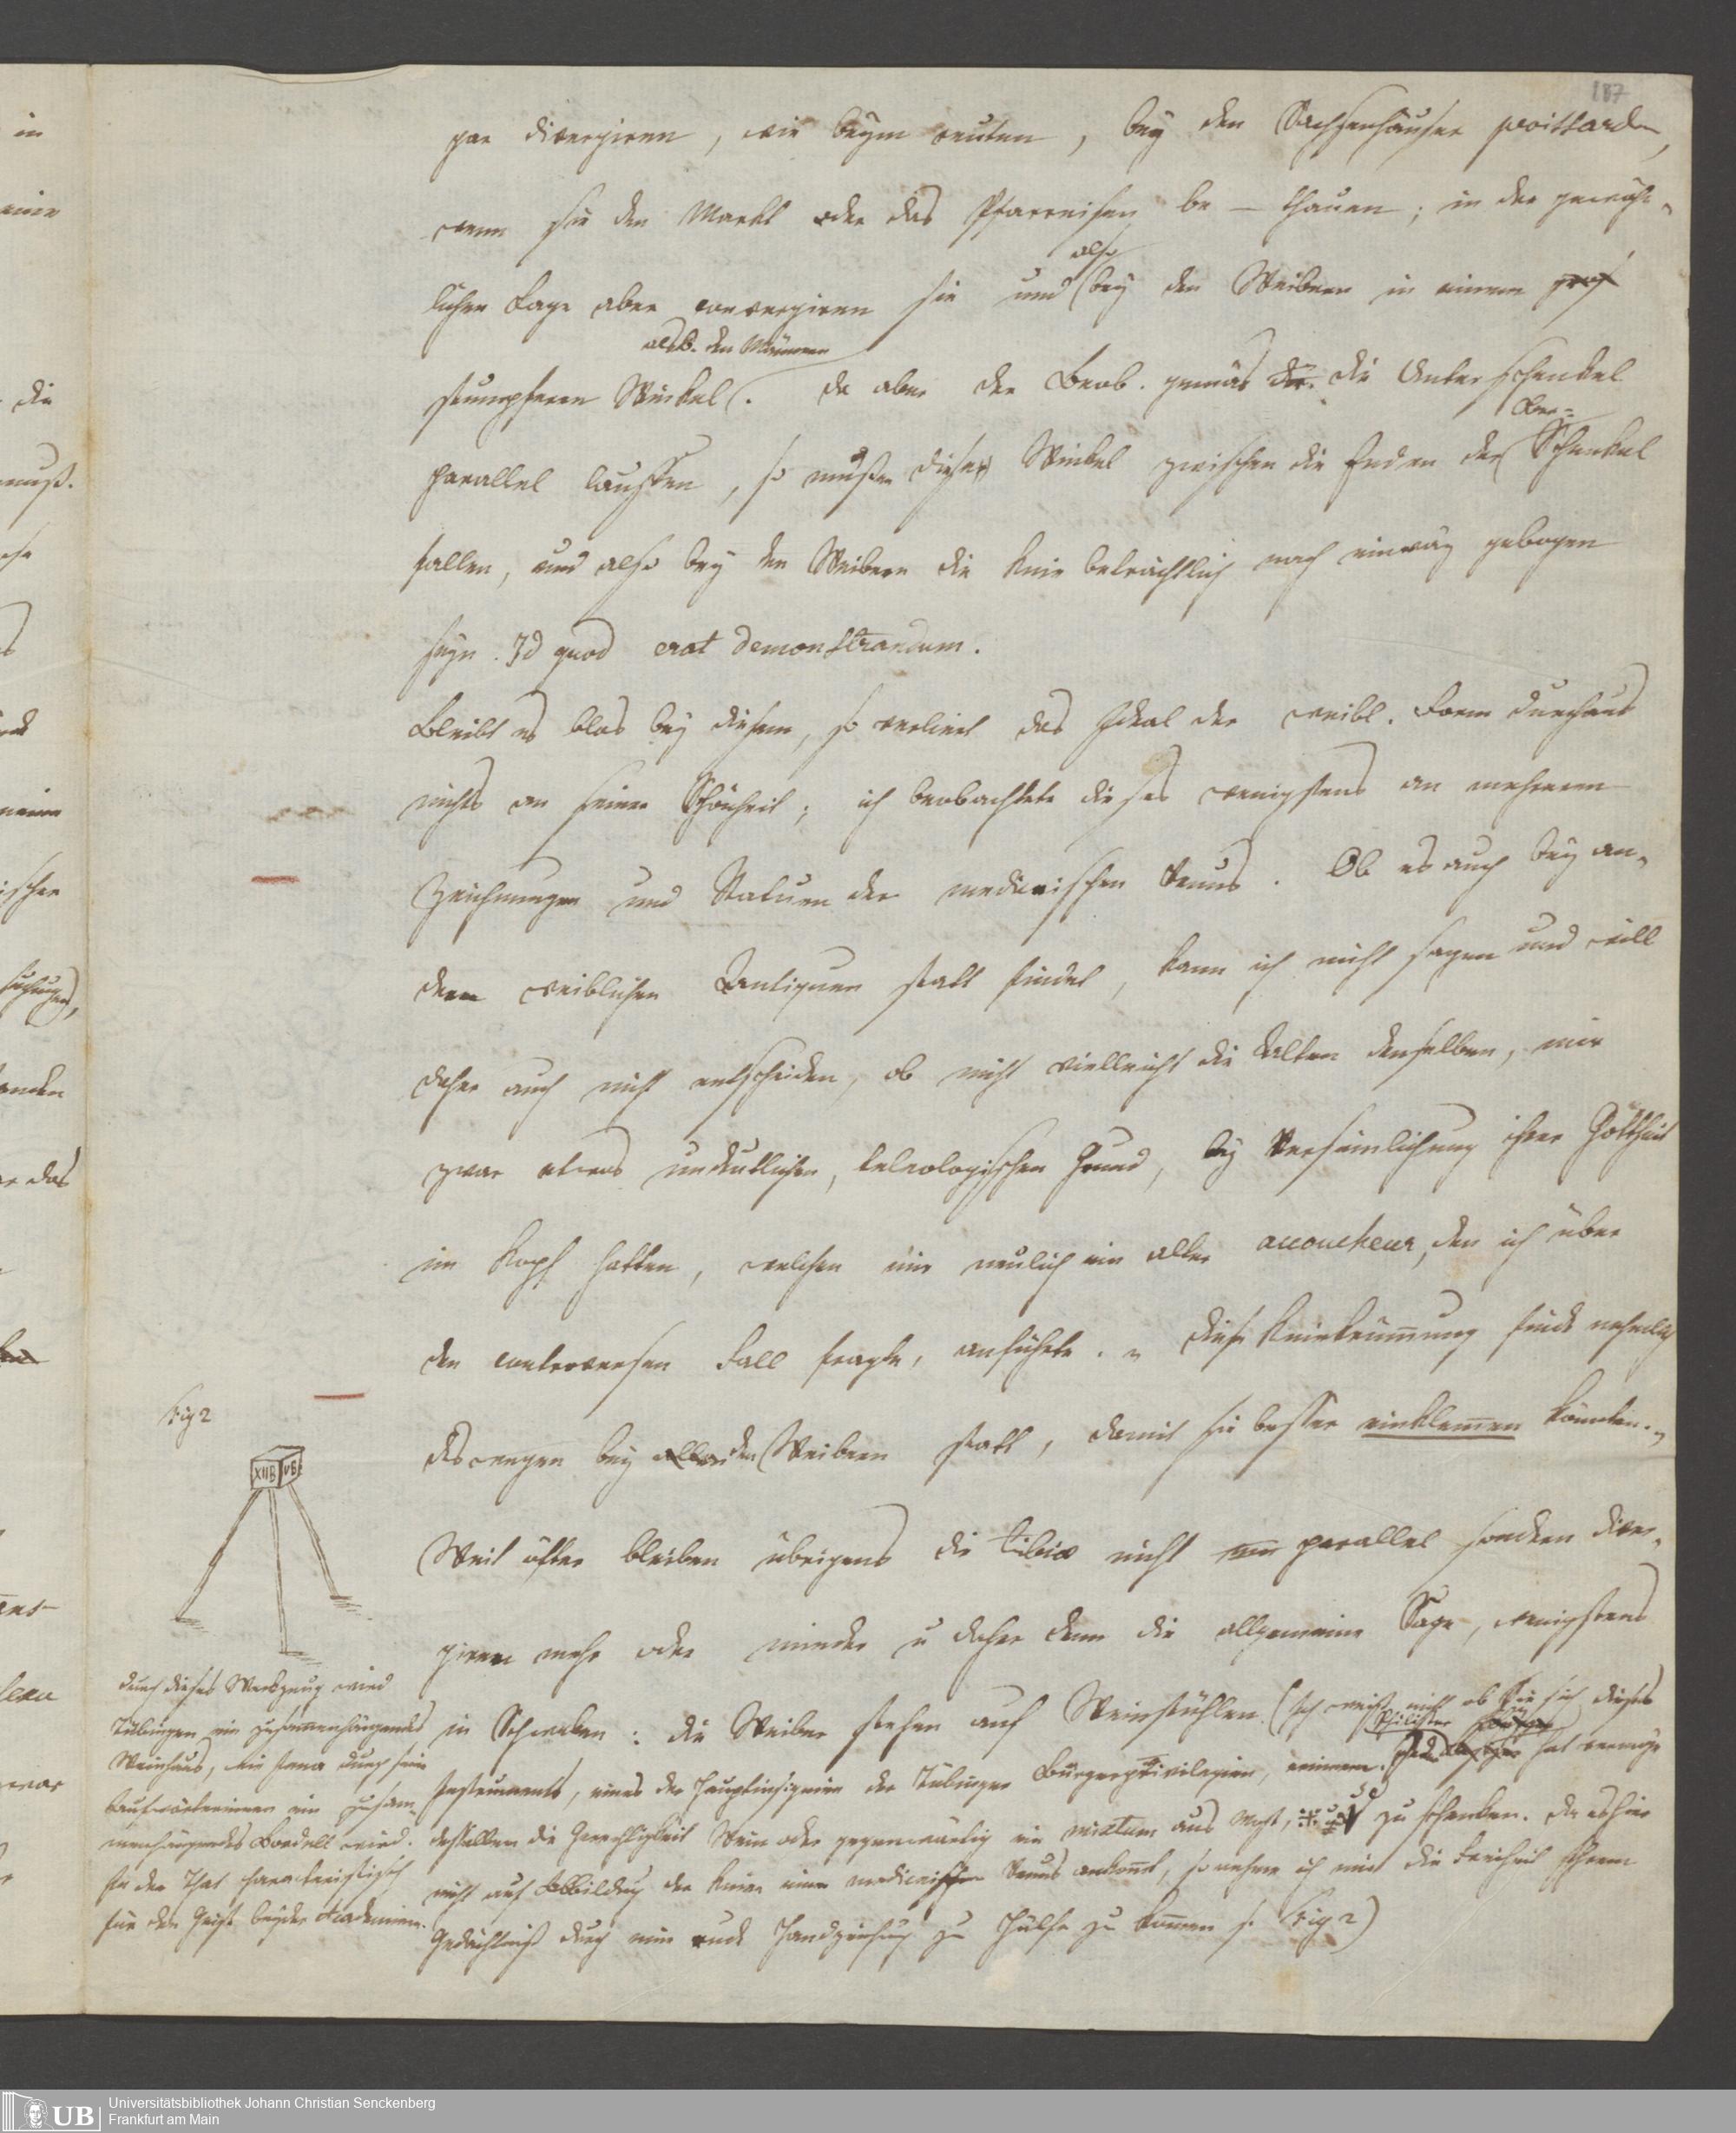 187
gar divergiren, wie beym reuten, bey den Sachsenhäuser poissarden,
wenn sie den Markt oder das Pfarreisen be — thauen; in der gewöhn-
lichen Lage aber convergiren sie und also bey den Weibern in einem
stumpferen Winkel als b. den Männern. Da aber der Beob. gemäs die Unterschenkel
parallel lauffen, so müßen dieser Winkel zwischen die Enden der Ober-Schenkel
fallen, und also bey den Weibern die Knie beträchtlich nach einwäg gebogen
seyn. Id quod erat demonstrandum.
Bleibt es blos bey diesem, so verliert das Ideal der weibl. Form durchaus
nichts an seiner Schönheit; ich beobachtete dieses wenigstens an mehreren
Zeichnungen und Statuen der mediceischen Venus. Ob es auch bey an-
dern weiblichen Antiquen statt findet, kann ich nicht sagen und will
daher auch nicht entscheiden, ob nicht vielleicht die Alten denselben, mir
zwar etwas undeutlichen, teleologischen Grund, bey Versinnlichung ihrer Gottheit
im Kopf hatten, welchen mir neulich ein alter accoucheur, den ich über
den controversen Fall fragte, anführte. „Diese Kniekrümmung findet nehmlich
deswegen bey den Weibern statt, damit sie besser einklemen könnten."
Weit öfter bleiben übrigens die tibiæ nicht parallel sondern diver-
giren mehr oder minder u daher denn die allgemeine Sage, wenigstens
in Schwaben: die Weiber stehen auf Weinstühlen. (Ich weiß nicht ob Sie sich dieses
Instruments, eines der Hauptinsignien der Tübinger Bürgerprivilegien, erinnern. Philister hat vermöge
desselben die Gerechtigkeit Wein oder gegenwärtig ein mixtum aus Most, zu schenken. Da es hier
nicht auf Abbildung der Knie einer mediceischen Venus ankomt, so nehme ich mir die Freiheit ihrem
Gedächtniß durch eine rude Handzeichnung zu Hülfe zu komen s. Fig 2)
Fig 2
XIIB VB
durch dieses Werkzeug wird
Tübingen ein zusammenhängendes
Weinhaus, wie Jena durch seine
Aufwärterinnen ein zusam-
menhängendes Bordell wird.
In der That characteristisch
für den Geist beyder Academien.
Universitätsbibliothek Johann Christian Senckenberg
Frankfurt am Main
UB